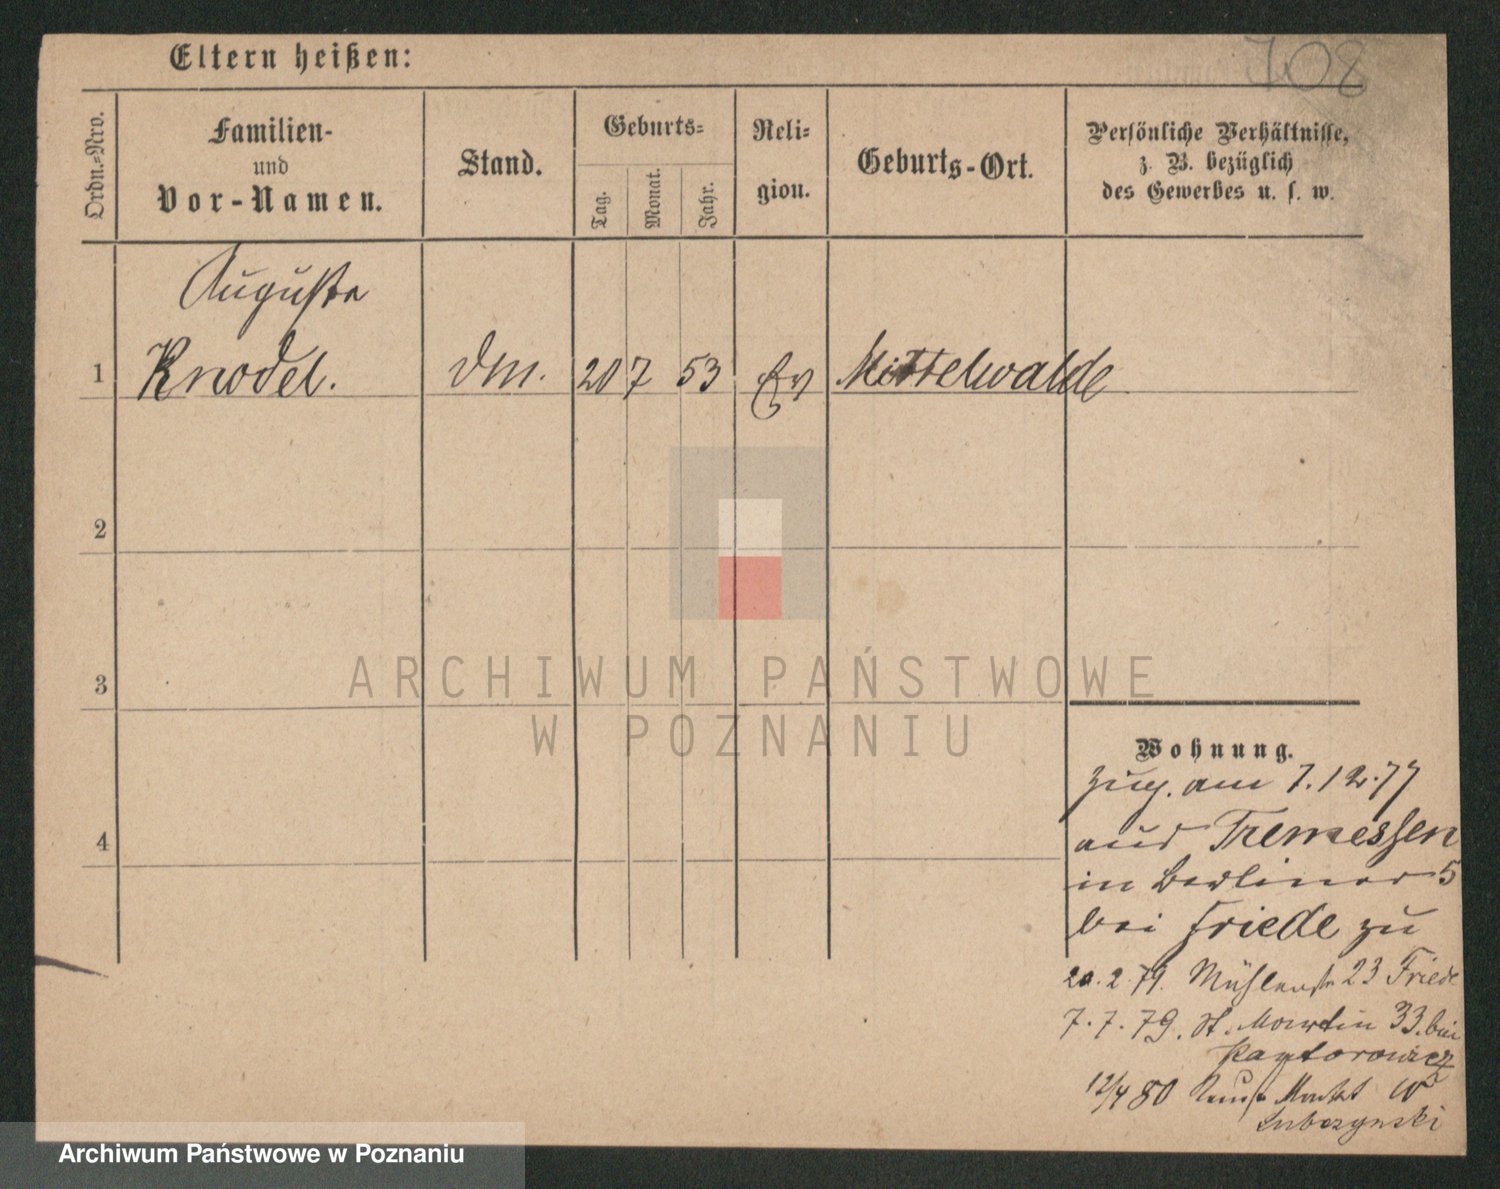 708
Eltern heißen:
Ordn.-Nro.
Familien-
und
Vor-Namen.
Stand.
Geburts-
Tag.
Monat.
Jahr.
Reli-
gion.
Geburts-Ort.
Persönliche Verhältnisse,
z. B. bezüglich
des Gewerbes u. s. w.
Auguste
1 Knodel. 20 7 53 Ev Mittelwalde
2
3
4
ARCHIWUM PAŃSTWOWE
W POZNANIU
Wohnung.
zug. am 7.12.77
aus Tremessen
in Berliner 5
bei Friede zu
20.2.79. Mühlenstr 23 Friede
7.7.79. St. Martin 33. bei
Kantorowicz
12/4 80 Markt
Lubczynski
Archiwum Państwowe w Poznaniu